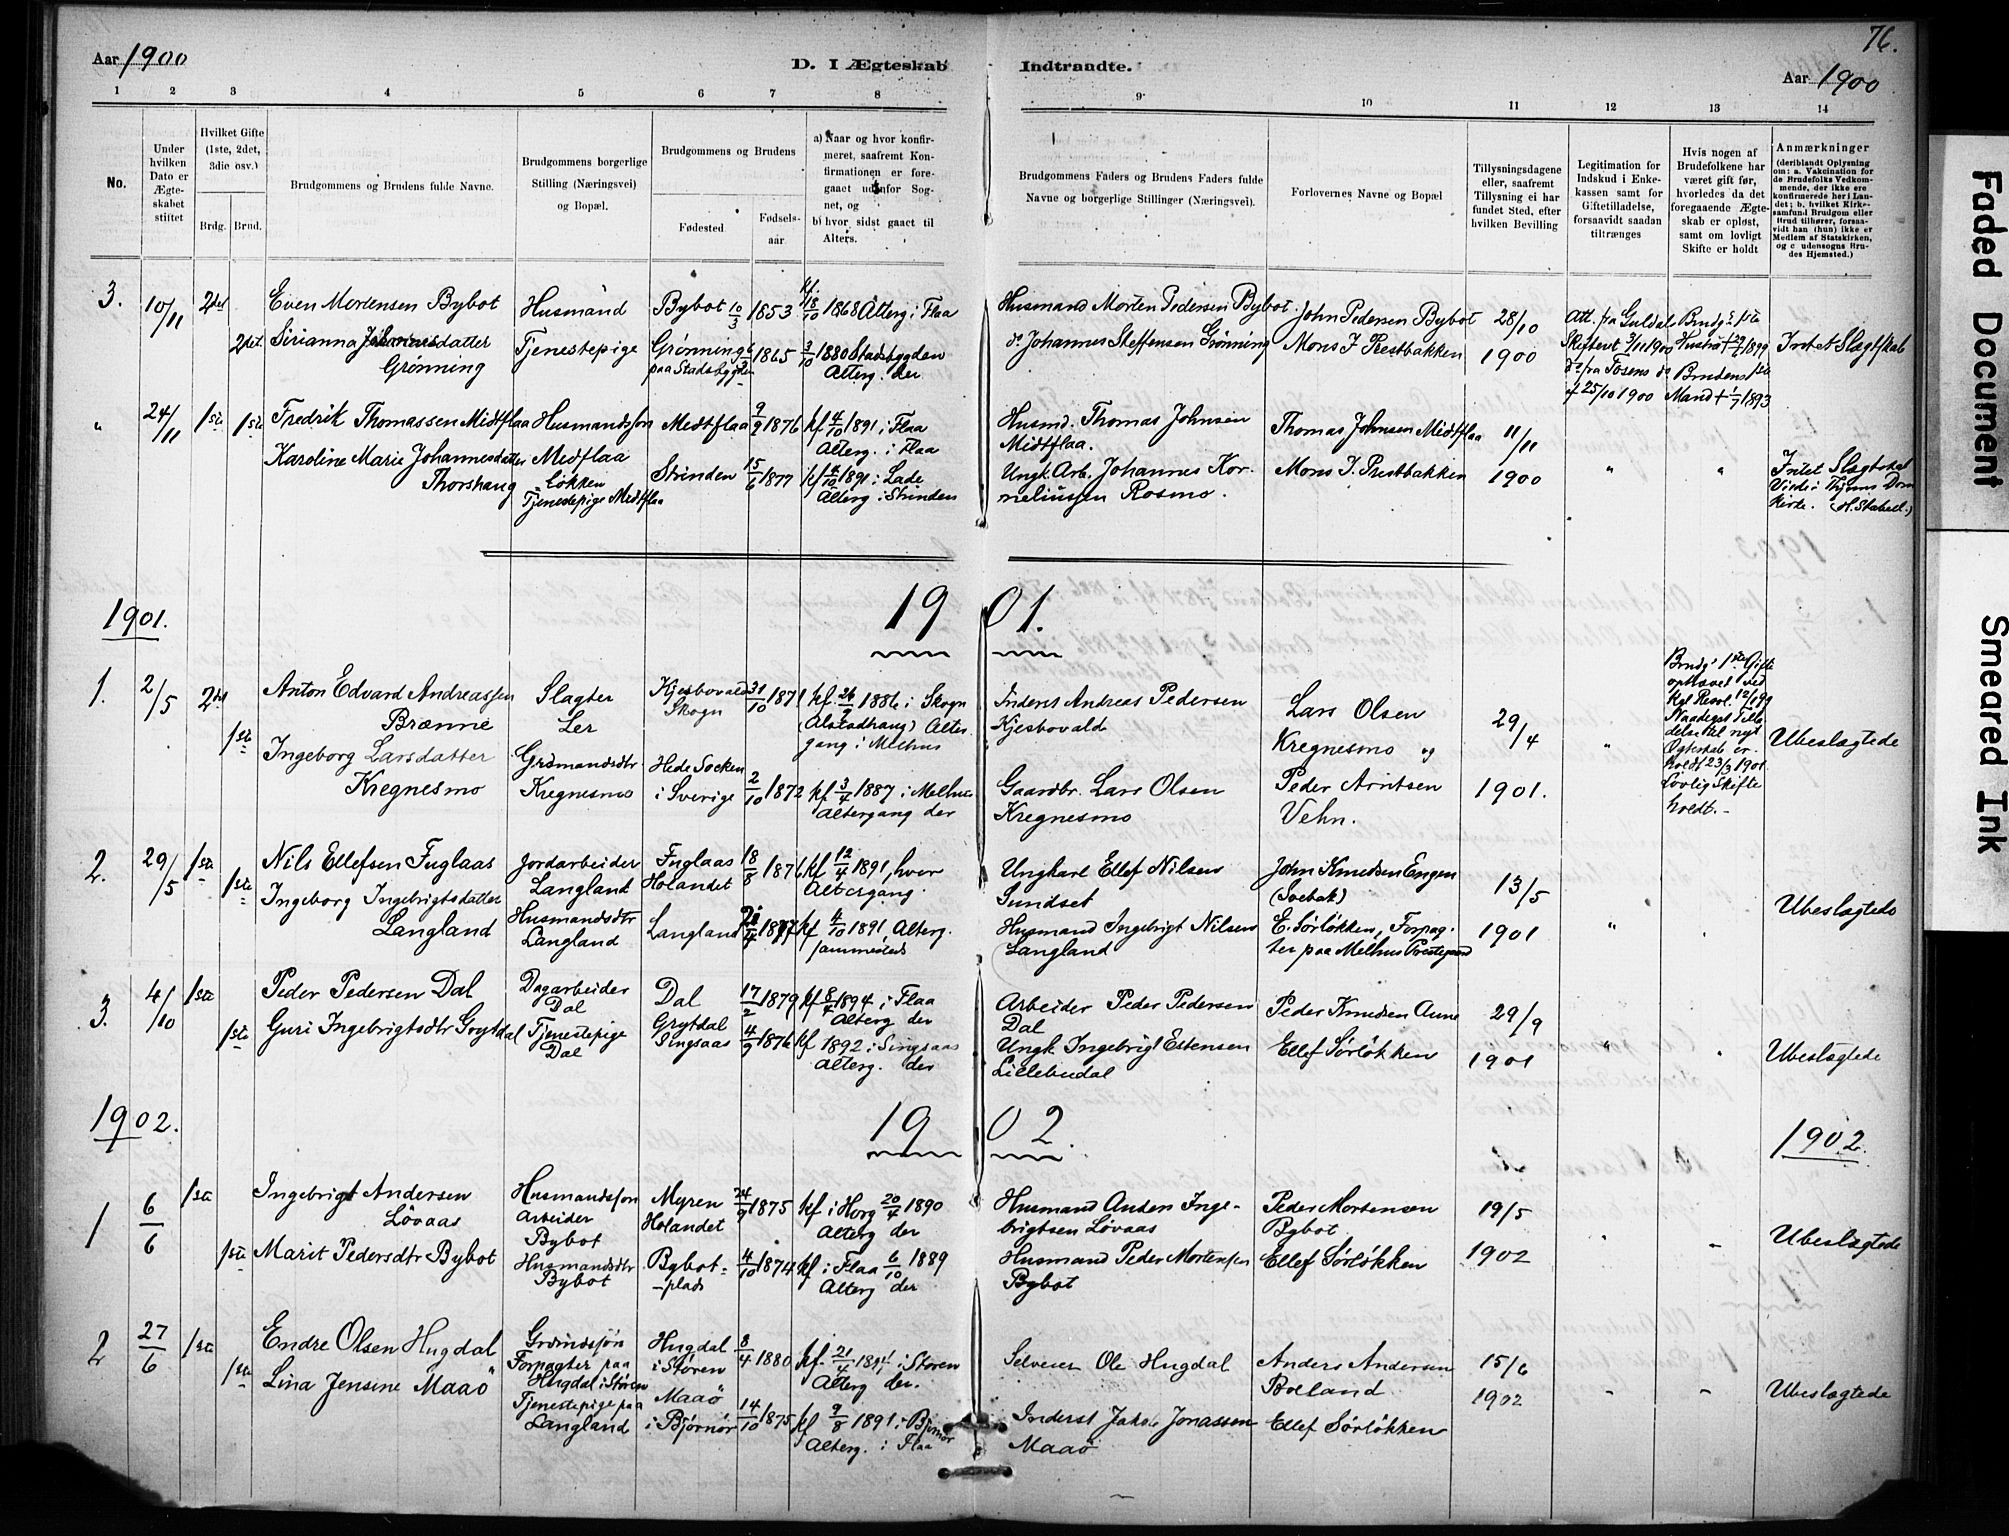 76.
Aar 1900
D. I Ægteskab Indtraadte.
Aar 1900
1 2 3 4 5 6 7 8 9 10 11 12 13 14
No.
Under hvilken Dato er Ægteskabet stiftet
Hvilket Gifte (1ste, 2det, 3die osv.)
Brdg. Brud.
Brudgommens og Brudens fulde Navne.
Brudgommens borgerlige Stilling (Næringsvei) og Bopæl.
Brudgommens og Brudens
Fødested.
Fødsels-aar.
a) Naar og hvor konfirmeret, saafremt Konfirmationen er foregaaet udenfor Sognet, og
b) hvor sidst gaaet til Alters.
Brudgommens Faders og Brudens Faders fulde Navne og borgerlige Stillinger (Næringsvei).
Forlovernes Navne og Bopæl
Tillysningsdagene eller, saafremt Tillysning ei har fundet Sted, efter hvilken Bevilling
Legitimation for Indskud i Enkekassen samt for Giftetilladelse, forsaavidt saadan tiltrænges
Hvis nogen af Brudefolkene har været gift før, hvorledes da det foregaaende Ægteskab er opløst, samt om lovligt Skifte er holdt
Anmærkninger
(deriblandt Oplysning om: a. Vakcination for de Brudefolks Vedkommende, der ikke ere konfirmerede her i Landet; b. hvilket Kirkesamfund Brudgom eller Brud tilhører, forsaavidt han (hun) ikke er Medlem af Statskirken, og c. udensogns Brudes Hjemsted.)
3. 10/11 2det Even Mortensen Bybot Husmand Bybot 10/3 1853 kf. 18/10 1868 Alterg. i Flaa Husmand Morten Pedersen Bybot. John Pedersen Bybot 28/10 Att. fra Guldal Brudg. 1ste
2det Sirianna Johannesdatter Tjenestepige Grønning 1865 3/10 1880 Stadsbygden do Johannes Steffensen Grønning Mons J. Prestbakken 1900 Skifteret 3/11 1900 Hustru + 1899 Intet Slægtskab
Grønning paa Stadsbygden Alterg. der do fra Fosens do Brudens 1ste
af 25/10 1900 Mand + 1/7 1893
" 24/11 1ste 1ste Fredrik Thomassen Midtflaa Husmandssøn Midtflaa 9/2 1876 kf 4/10 1891 i Flaa Husmd. Thomas Johnsen Thomas Johnsen Midtflaa 11/11
Medflaa Alterg. i Flaa Midtflaa.
Karoline Marie Johannesdatter Løkken Strinden 15/6 1877 kf 4/10 1891 i Lade Ungk. Arb. Johannes Kor- Mons J. Prestbakken 1900 " " Intet Slægtskab
Thorshaug Tjenestepige Midtflaa Alterg. i Strinden neliussen Rosmo. Viede i Thjems Dom
Kirke. (H. Stabell.)
1901. 1901.
1. 2/5 2det Anton Edvard Andreassen Slagter Kjesbovald 31/10 1871 kf. 26/9 1886 i Skogn Inderst Andreas Pedersen Lars Olsen 29/4 Brudg. 1ste Gifte
Brænne Ler Skogn (Alstadhaug) Alter- Kjesbovald Kregnesmo og ophævet ved
gang i Melhus kgl Resol. 12/1 99
1ste Ingeborg Larsdatter Grdmandsdtr Hede Socken 2/10 1872 kf 3/4 1887 i Melhus Gaardbr. Lars Olsen Peder Arntsen 1901. " Naadigst Tilla-
Kregnesmo Kregnesmo i Sverige Altergang der Kregnesmo Vehn. delse til nyt
Ægteskab er- Ubeslægtede
holdt 23/3 1901
Lovlig Skifte
holdt. -
2. 29/5 1ste Nils Ellefsen Fuglaas Jordarbeider Fuglaas 18/8 1876 kf 12/4 1891, hvor Ungkarl Ellef Nilsen John Knudsen Engen 13/5
Langland Holandet Altergang. Sundset (Soebak)
1ste Ingeborg Ingebrigtsdatter Husmandsdtr Langland 1877 kf 4/10 1891, Alterg. Husmand Ingebrigt Nilsen E. Sørløkken, Forpag- 1901 " Ubeslægtede
Langland Langland sammesteds Langland ter paa Melhus Prestegaard
3. 4/10 1ste Peder Pedersen Dal Dagarbeider Dal 17/2 1879 kf 8/4 1894 i Flaa Arbeider Peder Pedersen Peder Knudsen Aune 29/9
Dal Alterg der Dal
1ste Guri Ingebrigtsdtr Grytdal Tjenestepige Grytdal 4/9 1876 kf 1892 i Singsaas Ungk. Ingebrigt Estensen Ellef Sørløkken 1901 " Ubeslægtede
Dal Singsaas Alterg. der Lillebudal
1902. 1902. 1902.
1 6/6 1ste Ingebrigt Andersen Husmandssøn Myren 24/9 1875 kf i Horg 20/4 1890 Husmand Anders Inge- Peder Mortensen 19/5
Løvaas Arbeider Holandet Alterg der brigtsen Løvaas Bybot
Bybot
1ste Marit Pedersdtr Bybot Husmandsdtr Bybot- 4/10 1874 kf i Flaa 6/10 1889 Husmand Peder Mortensen Ellef Sørløkken 1902 Ubeslægtede
Bybot -plads Alterg der Bybot
2 27/6 1ste Endre Olsen Hugdal Grdmdssøn Hugdal 8/4 1880 kf. 21/4 i Støren Selveier Ole Hugdal Anders Andersen 15/6
Forpagter paa i Støren Alterg der. Boland
Hugdal i Støren
1ste Lina Jensine Maaö Tjenestepige paa Maaö 14/10 1875 kf 9/8 1891 i Bjørnør Inderst Jakob Jonassen Ellef Sørløkken 1902 Ubeslægtede
Langland i Bjørnør Alterg. i Flaa Maaö
Faded Document
Smeared Ink